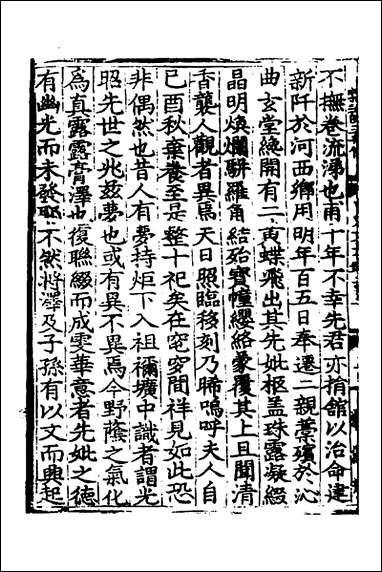 不撫卷流涕也甫十年不幸先君亦捐館以治命建
新阡於河西鄉用明年百五日奉遷二親藁殯於沁
曲玄堂繞開有一黃蝶飛出其先妣柩盖珠露凝綴
晶明煥爛駢羅角結殆寶幢纓絡蒙覆其上且聞清
香襲人觀者異焉天日照臨移刻乃晞嗚呼夫人自
已酉秋棄養至是整十祀矣在窀穸間祥見如此恐
非偶然也昔人有夢持炬下入祖禰壙中識者謂光
昭先世之兆兹夢也或有異不異焉今野蔭之氣化
為直露露膏澤也復聯綴而成雯華意者先妣之德
有幽光而未發耶不然將澤及子孫有以文而興起